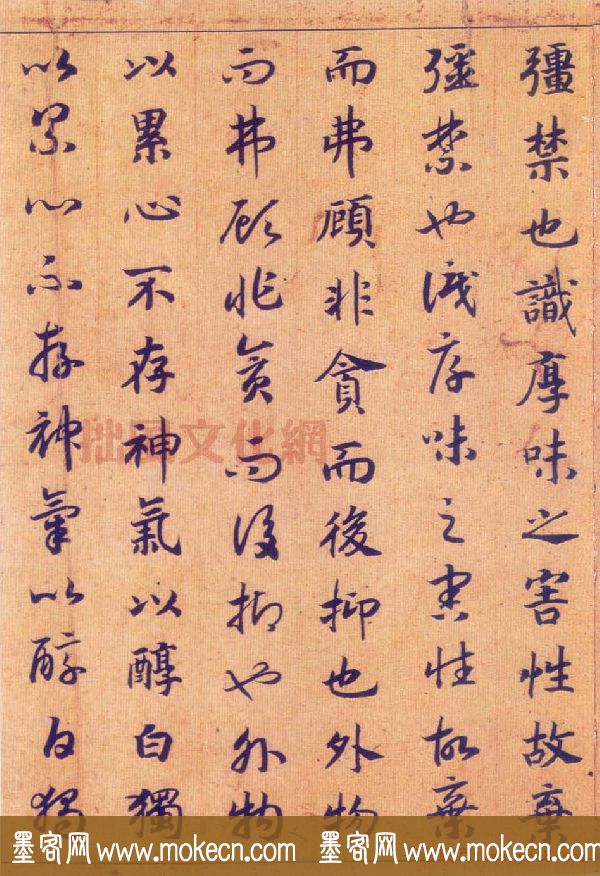 彊禁也識厚味之害性故棄
彊禁也識厚味之害性故棄
而弗顧非貪而後抑也外物
而弗顧非貪而後抑也外物
以累心不存神氣以醇白獨
以累心不存神氣以醇白獨
拙風文化網
墨客网 www.mokecn.com 墨客网 www.mokecn.com